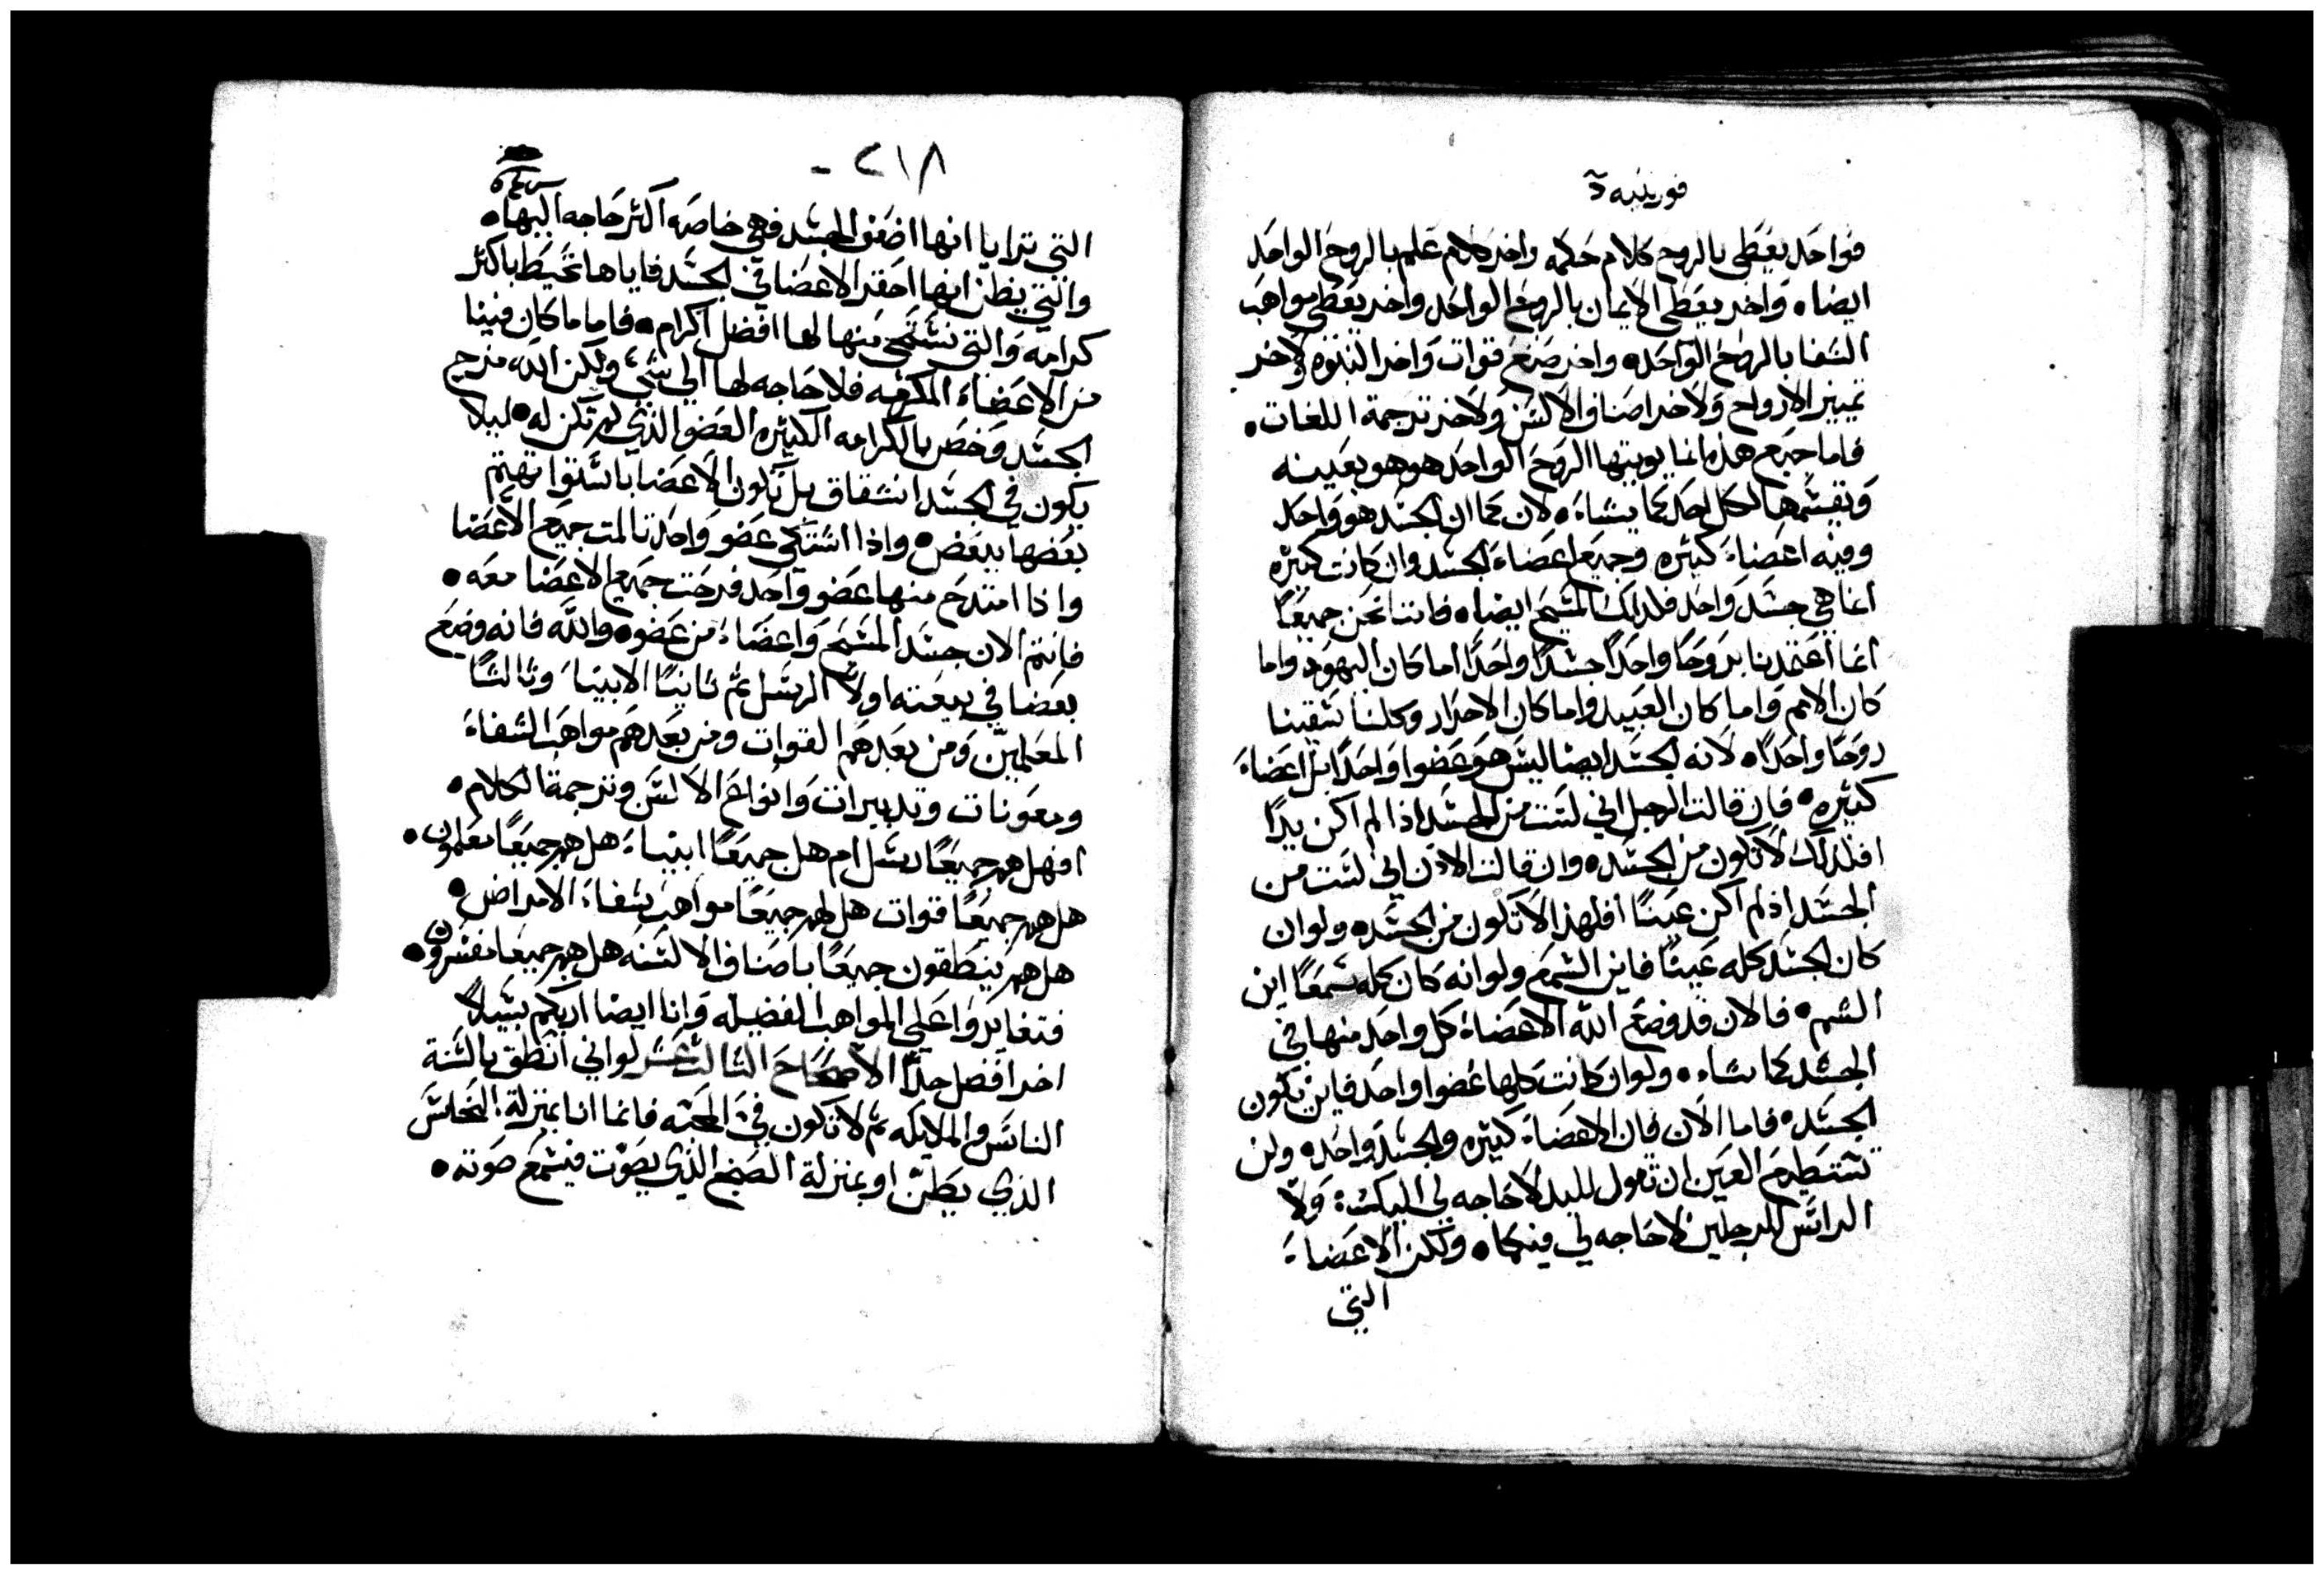 قورينتيه ٥
فواحد يعطى بالروح كلام حكمه واخر كلام علم بالروح الواحد
ايضاه واخر يعطى الايمان بالروح الواحد واخر يعطي مواهب
الشفا بالروح الواحده واخر صنع قوات واخر النبوه ولاخر
تمييز الارواح ولاخر اصناف الالسن ولاخر ترجمة اللغات.
فاما جميع هذه انما يويتها الروح الواحد هو هو بعينه
ويقسمها لكل احد كما يشاء. لان كما ان الجسد هو واحد
وفيه اعضاء كثيره وجميع اعضاء الجسد وان كانت كثيره
انما هي جسد واحد فلذلك المسيح ايضاه فاننا نحن جميعًا
انما اعتمدنا بروحًا واحدًا جسدًا واحدًا اما كان اليهود واما
كان الامم واما كان العبيد واما كان الاحرار وكلنا سقينا
روحًا واحدًاه لانه الجسد ايضا ليس هو عضوا واحدًا بل اعضاء
كثيره. فان قالت الرجل اني لست من الجسد اذا لم اكن يدًا
افلذلك لا تكون من الجسده وان قالت الاذن اني لست من
الجسد اذ لم اكن عينًا افلهذا لا تكون من الجسده ولو ان
كان الجسد كله عينًا فاين السمع ولو انه كان كله سمعًا اين
الشم. فالان قد وضع الله الاعضاء كل واحد منها في
الجسد كما يشاء. ولو ان كانت كلها عضوا واحد فاين تكون
الجسده فاما الان فان الاعضاء كثيره والجسد واحده ولن
تستطيع العين ان تقول لليد لا حاجه لي اليك. ولا
الراس للرجلين لا حاجه لي فيكما. ولكن الاعضاء
التي
٢١٨ -
التي ترايا انها اضعف الجسد فهي خاصه اكثر حاجه اليها.
والتي يظن انها احقر الاعضا في الجسد فاياها نحيط باكثر
كرامه والتي نستحي منها لها افضل اكرام. فاما ما كان فينا
من الاعضاء المكرمه فلا حاجه لها الي شي ولكن الله مزج
الجسد وخص بالكرامه الكثيره العضو الذي لم تكن له. ليلا
يكون في الجسد انشقاق بل تكون الاعضا باستوا تهتم
بعضها ببعض. واذا اشتكي عضو واحد تالمت جميع الاعضا
واذا امتدح منها عضو واحد فرحت جميع الاعضا معه.
فانتم الان جسد المسيح واعضاء من عضوه والله فانه وضع
بعضا في بيعته اولًا الرسل ثم ثانيًا الانبيا وثالثًا
المعلمين ومن بعدهم القوات ومن بعدهم مواهب الشفاء
ومعونات وتدبيرات وانواع الالسن وترجمة الكلام.
افهل هم جميعًا رسل ام هل جميعًا انبياء هل هم جميعًا معلمون.
هل هم جميعًا قوات هل لهم جميعًا مواهب شفاء الامراض.
هل هم ينطقون جميعًا باصناف الالسنه هل هم جميعًا مفسرون.
فتغايروا علي المواهب الفضيله وانا ايضا اريكم سبيلًا
اخر افضل جدًا الاصحاح الثالث عشر لو اني انطق بالسنة
الناس والملايكه ثم لا تكون فيَّ المحبه فانما انا بمنزلة النحاس
الذي يطن او بمنزلة الصنج الذي يصوت فيسمع صوته.